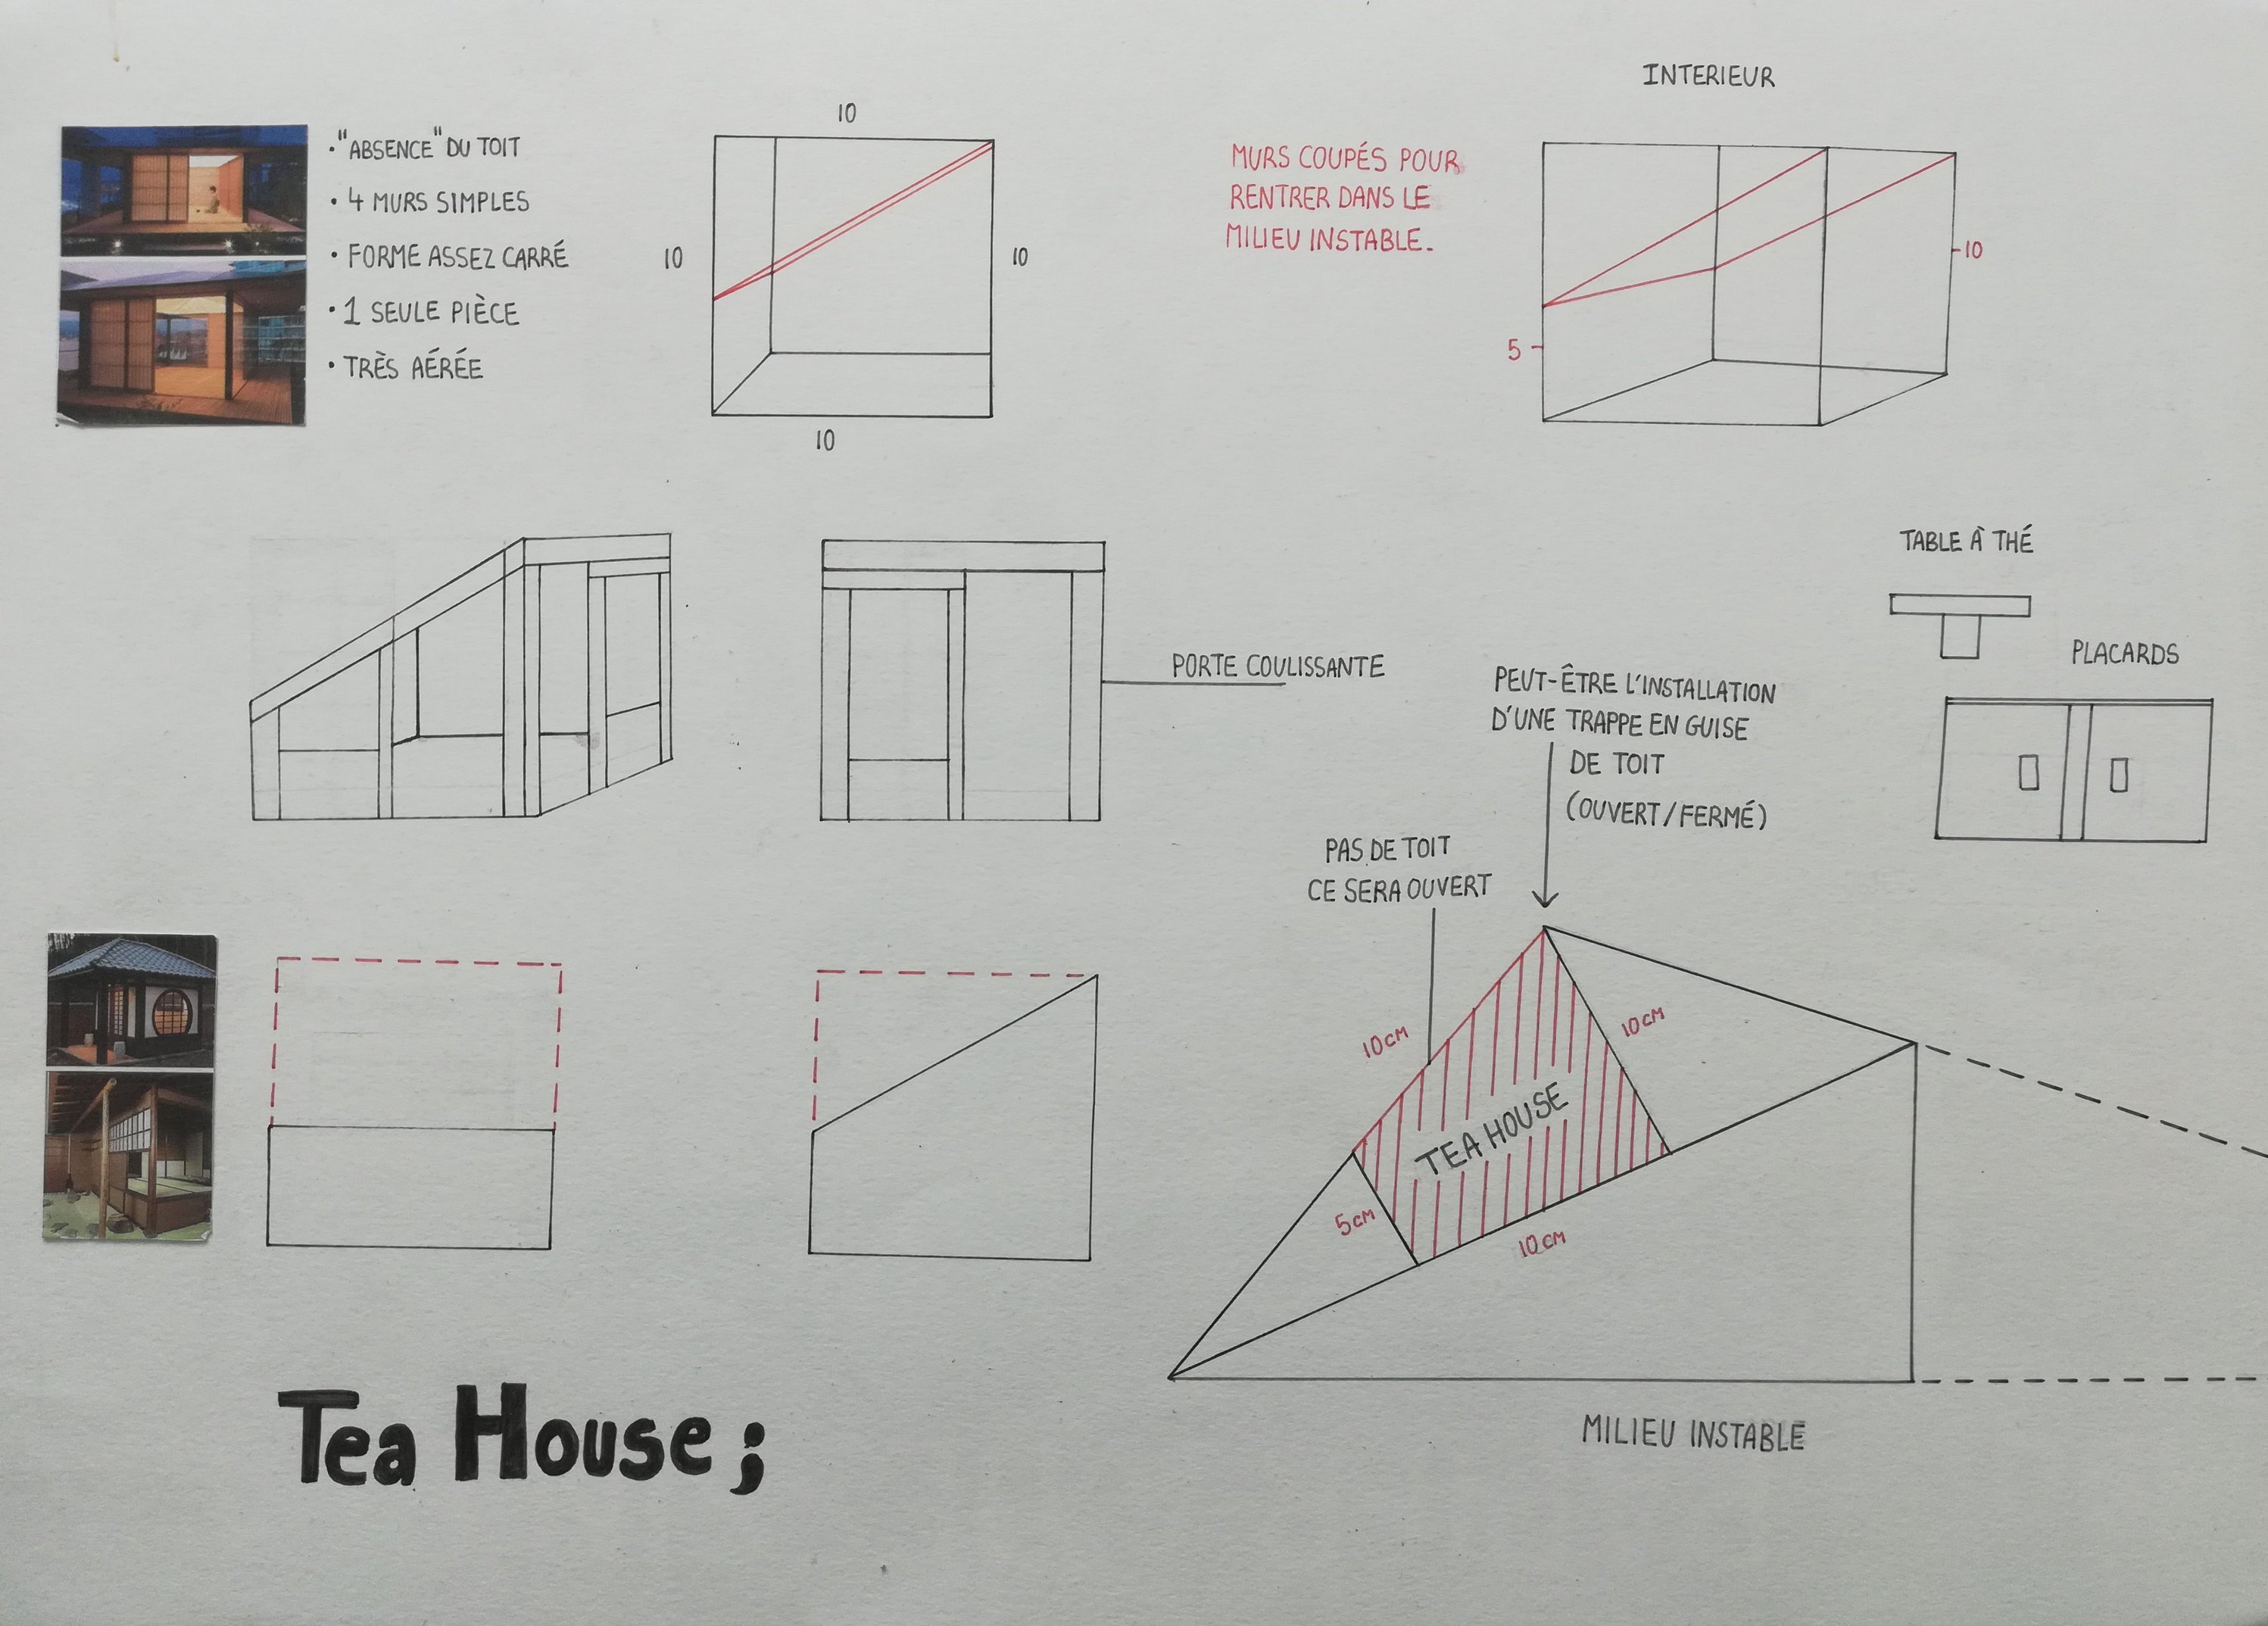 • "ABSENCE" DU TOIT
• 4 MURS SIMPLES
• FORME ASSEZ CARRÉ
• 1 SEULE PIÈCE
• TRÈS AÉRÉE
10
10
10
10
MURS COUPÉS POUR
RENTRER DANS LE
MILIEU INSTABLE.
INTERIEUR
10
5
PORTE COULISSANTE
TABLE À THÉ
PLACARDS
PEUT-ÊTRE L'INSTALLATION
D'UNE TRAPPE EN GUISE
DE TOIT
(OUVERT/FERMÉ)
PAS DE TOIT
CE SERA OUVERT
10 CM
10 CM
TEA HOUSE
5 CM
10 CM
MILIEU INSTABLE
Tea House ;